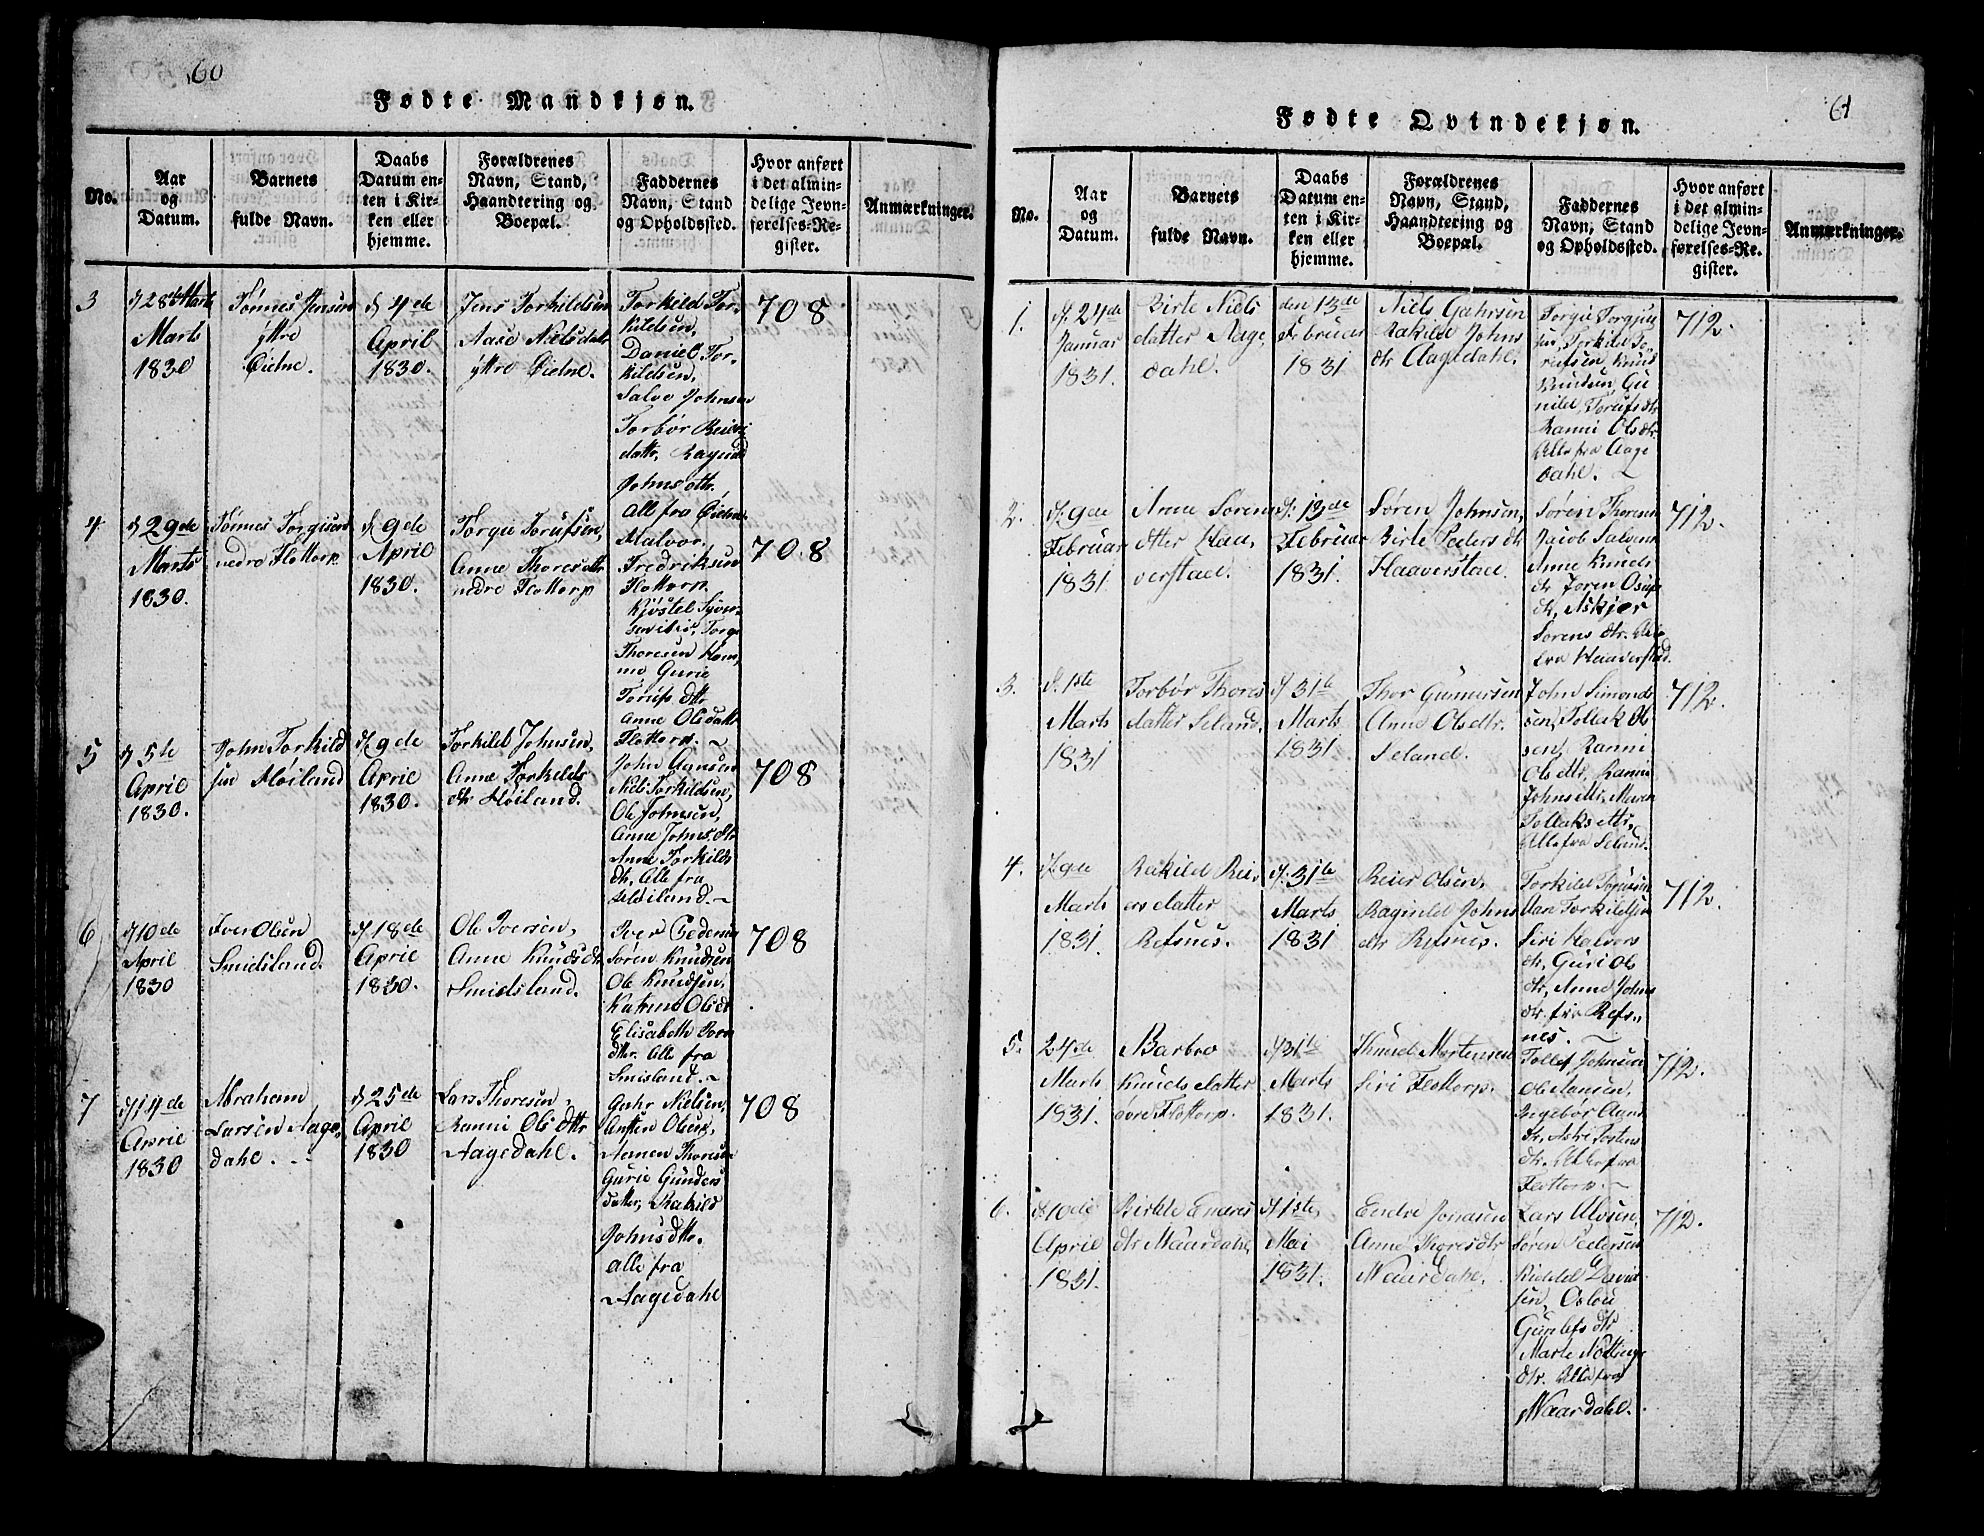 60
Fødte Mandkjøn.
No.
Aar
og
Datum.
Barnets
fulde Navn.
Daabs
Datum en-
ten i Kir-
ken eller
hjemme.
Forældrenes
Navn, Stand,
Haandtering og
Boepæl.
Faddernes
Navn, Stand
og Opholdssted.
Hvor anført
i det almin-
delige Jevn-
førelses-Re-
gister.
Anmærkninger.
3
d 28de Marts
Marts
1830
Tønnes Jensen
ÿttre
Øielne.
d 4de
April
1830.
Jens Torkildsen
Aase Nielsdatr
ÿttre Øielne.
Torkild Tor-
kildsen,
Daniel Tor-
kildsen,
Salve Johnsen
Torbør Reiers
datr,
Johns dtr.
alle fra Øielne.
708
4
d 29de
Marts
1830.
Tønnes Torgiesen
nedre Flottorp
d 9de
April
1830.
Torgie Torufsen,
Anne Thoresdtr
nedre Flottorp
Halvor
Fredriksen
Flottorp.
Thoresen Hom
me Gurie
Torufs dtr
Anne Olsdattr
Flottorp.
708
5
d 5te
April
1830.
John Torkild
sen Høiland
d 9de
April
1830.
Torkild Johnsen,
Anne Torkilds
dtr Høiland.
John Aansen
Niels Torkildsen,
Ole Johnsen,
Anne Johns dtr
Anne Torkilds
dtr, alle fra
Høiland.
708
6
d 10de
April
1830
Iver Olsen
Smidsland.
d 18de
April
1830.
Ole Iversen,
Anne Knudsdtr
Smidsland.
Iver
Søren Knudsen
Ole Knudsen,
Katrine Olsdtr
Elisabeth Ivers
dtr. alle fra
Smisland.
708
7
d 14de
April
1830
Abraham
Larsen Aage,
dahl.
d 25de
April
1830
Lars Thoresen,
Ranni Ols dttr
Aagedahl.
Guhr Nielsen,
Aamen Thoresen
Gurie Gunders
datter, Rakild
Johnsdtr.
alle fra
Aagedahl
708
61
Fødte Qvindekjøn.
No.
Aar
og
Datum.
Barnets
fulde Navn.
Daabs
Datum en-
ten i Kir-
ken eller
hjemme.
Forældrenes
Navn, Stand,
Haandtering og
Boepæl.
Faddernes
Navn, Stand
og Opholdssted.
Hvor anført
i det almin-
delige Jevn-
førelses-Re-
gister.
Anmærkninger.
1.
d. 24de
Januar
1831.
Birte Niels
datter Aage,
dahl.
den 13de
Februar
1831
Niels Gahrsen
Rakild Johns
dtr Aagedahl.
Knud
Knudsen, Gu
nild, Torufs dtr
Ranni Olsdtr
Alle fra Aage
dahl.
712.
2.
d. 9de
Februar
1831
Anne Søren
dtter Haa,
verstad.
d. 13de
Februar
1831.
Søren Johnsen,
Birte Peders dtr
Haaverstad.
Søren Thoresen
Jacob Salvesen
Anne Knuds
dtr Joren
dtr, Askjer
Sørens dtr. Alle
fra Haaverstad.
712.
3.
d. 1ste
Marts
1831
Torbør Thores
datter Seland.
d 31te
Marts
1831.
Thor Gunnersen
Anne Olsdtr.
Seland.
John Simonds
sen, Tollak Ol-
sen, Ranni
Olsdttr, Ranni
Johnsdttr, Maren
Tollaksdttr,
Alle fra Seland.
712.
4.
d. 9de
Marts
1831.
Rakild Rei,
ersdatter
Refsnes.
d. 31te
Marts
1831
Reier Olsen,
Ragnild Johns
dtr Refsnes.
Torkild Torufsen
Aan Torkildsen
Siri Halvors
dtr, Guri Ols
dtr, Anne Johns
dtr, fra Refs,,
nes.
712.
5.
24de
Marts
1831.
Barbro
Knudsdatter
øvre Flottorp.
d 31te
Marts
1831.
Knud Mortensen
Siri Flottorp.
Tollef Johnsen
Ole Hansen,
Ingebør Aans
dtr, Astri Jostens
dtr, Alle fra
Flottorp.
712.
6.
d. 10de
April
1831.
Birthe Endres
dtr Naardahl,
d 1ste
Mai
1831.
Endre Jonasen
Anne Thoresdtr
Naardahl.
Lars Alvsen,
Søren Pedersen
sen, Oslou
Gunlefs dtr
Marte
dtr. Alle fra
Naardahl.
712.